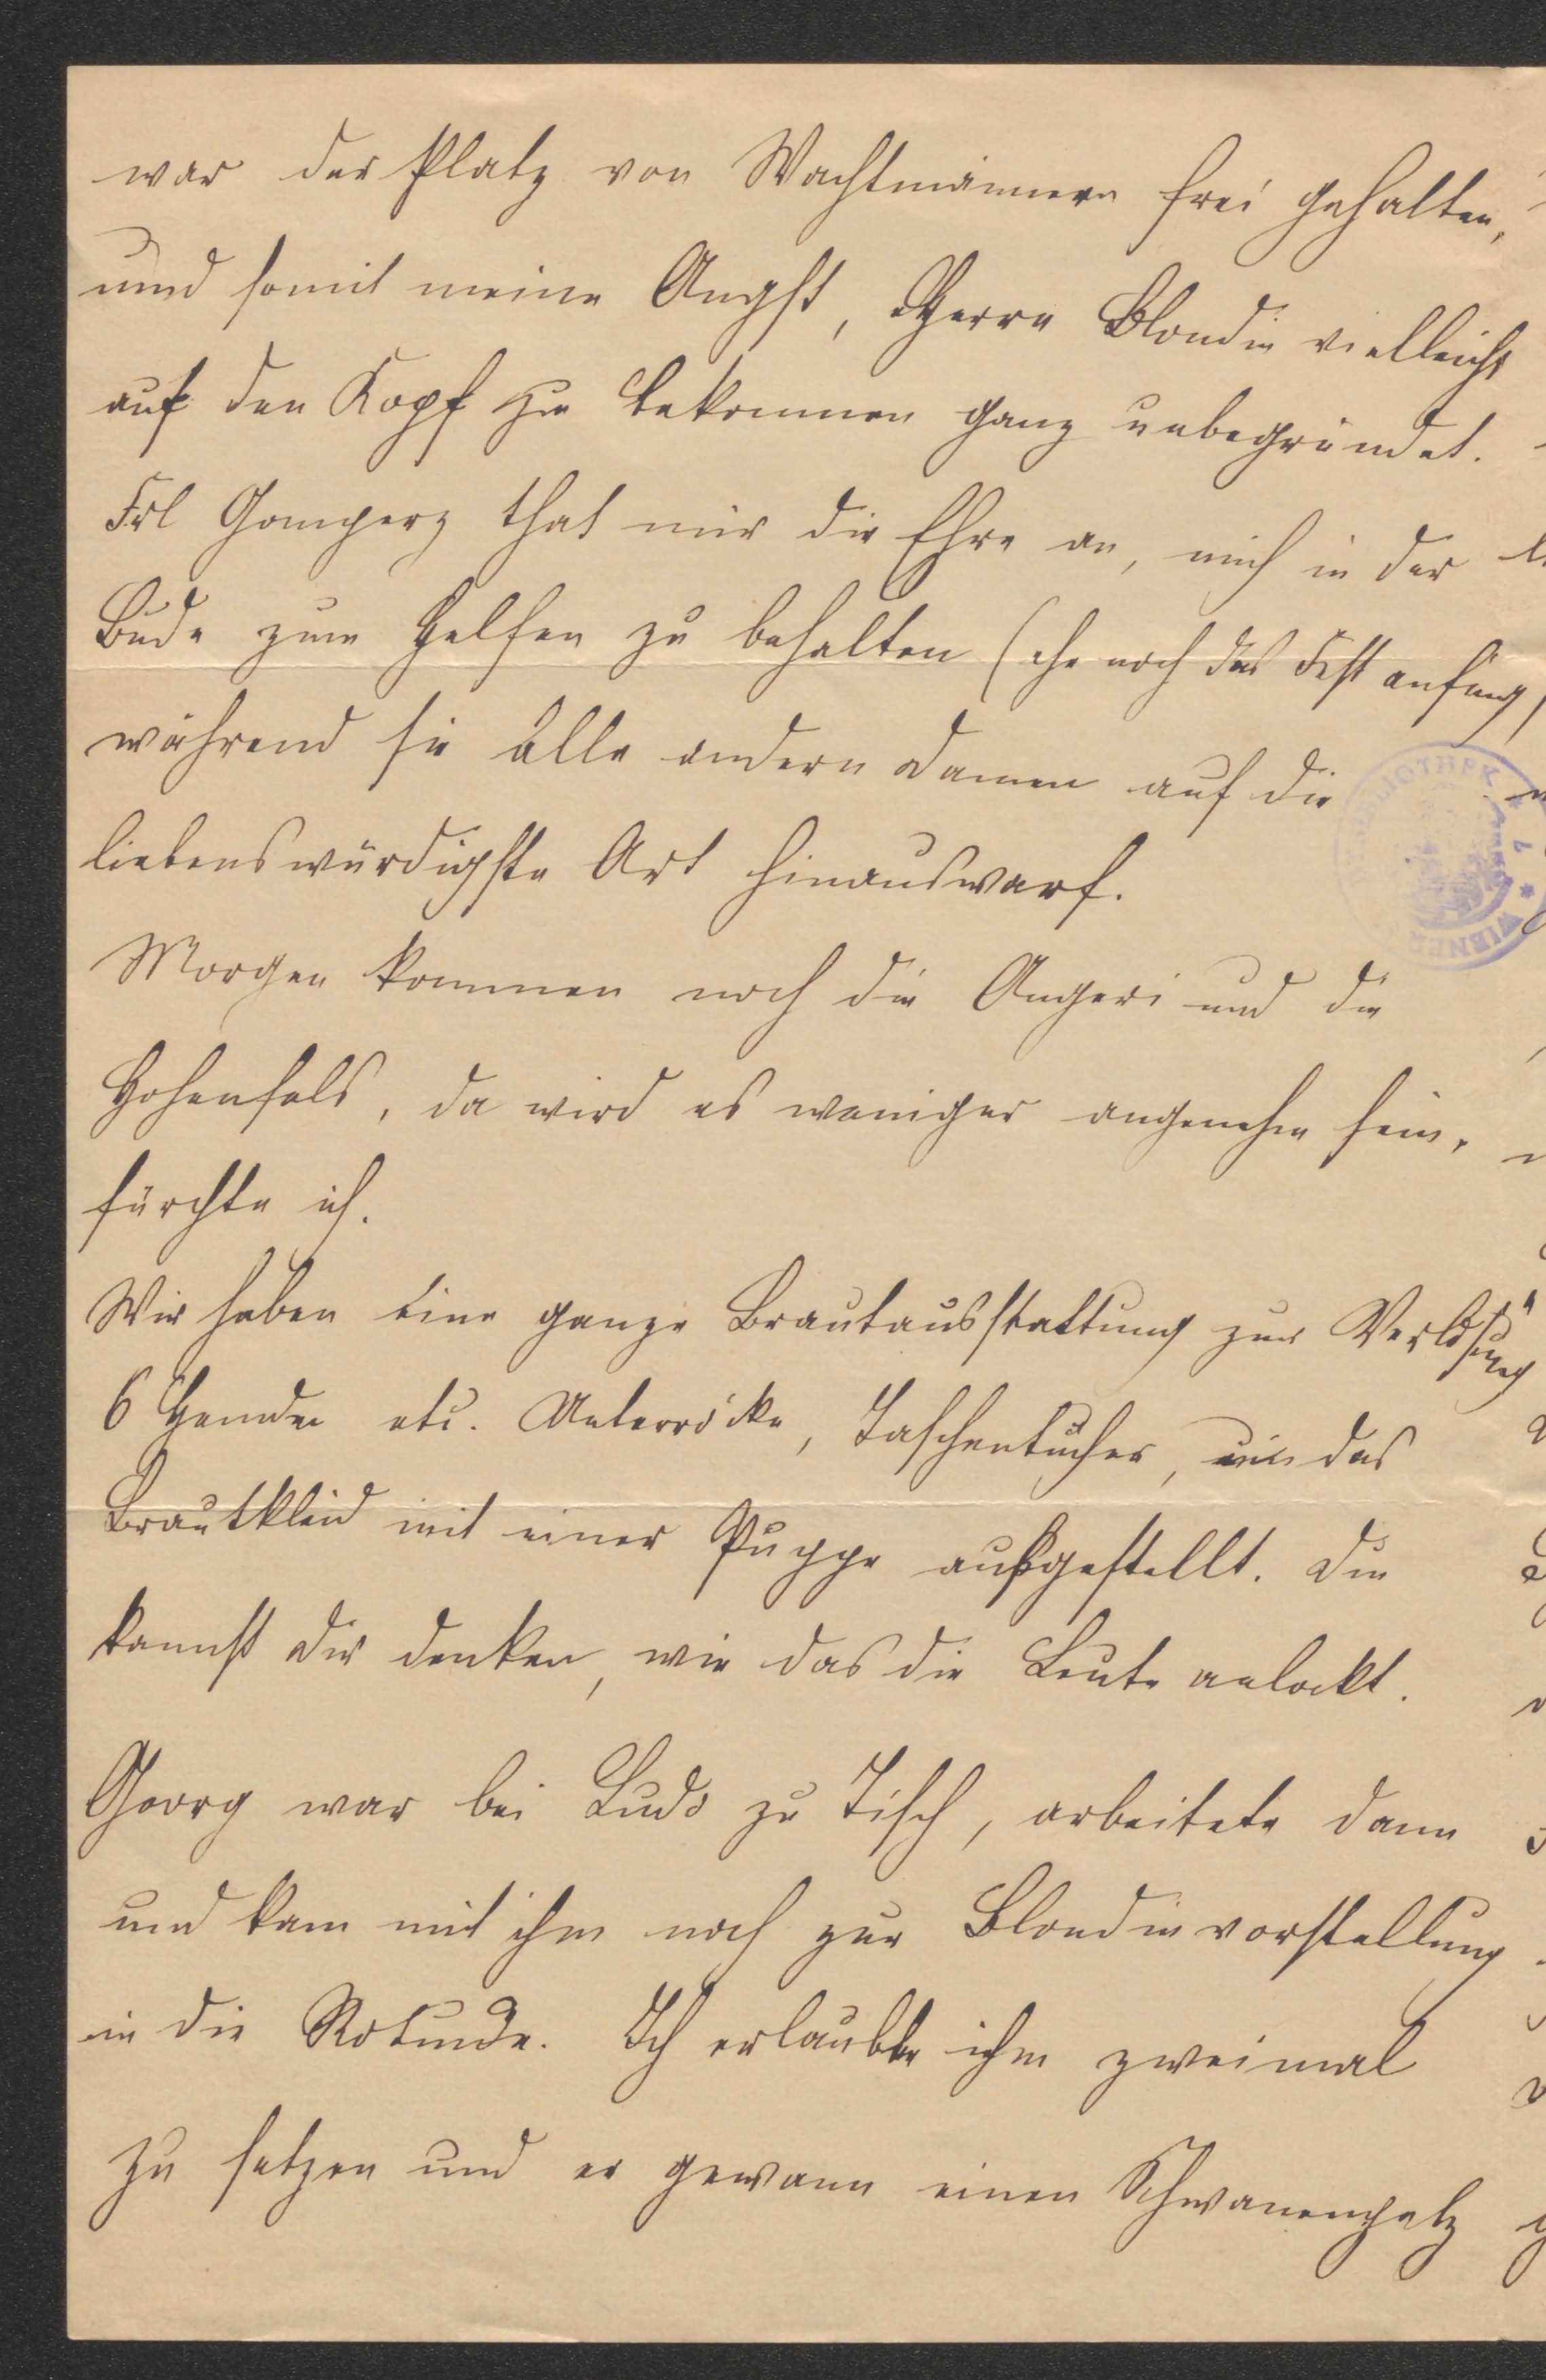 war der Platz von Wachtmännern frei gehalten,
und somit meine Angst, Herrn Blondin vielleicht
auf den Kopf zu bekommen ganz unbegründet.
Frl Gomperz that mir die Ehre an, mich in der
Bude zum Helfen zu behalten (ehe noch das Fest anfing)
während sie alle andern Damen auf die
liebenswürdigste Art hinauswarf.
Morgen kommen noch die Angeri und die
Hohenfels, da wird es weniger angenehm sein,
fürchte ich.
Wir haben eine ganze Brautausstattung zur Verlosung
6 Hemden etc. Unterröcke, Taschentücher, das
Brautkleid mit einer Puppe aufgestellt. Du
kannst Dir denken, wie das die Leute anlockt.
Georg war bei Ludo zu Tisch, arbeitete dann
und kam mit ihm noch zur Blondinvorstellung
in die Rotunde. Ich erlaubte ihm zweimal
zu setzen und er gewann einen Schwanenpelz
BIBLIOTHEK
WIENER